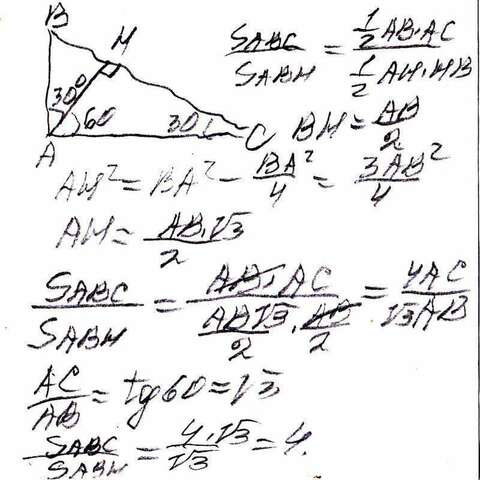 B
H
30°
60
30
A
C
SABC/SABH = 1/2 AB·AC / 1/2 AH·HB
BH = AB/2
AH² = BA² - BA²/4 = 3AB²/4
AH = AB·√3/2
SABC/SABH = AB·AC / AB√3/2 · AB/2 = 4AC/√3AB
AC/AB = tg60 = √3
SABC/SABH = 4·√3/√3 = 4.